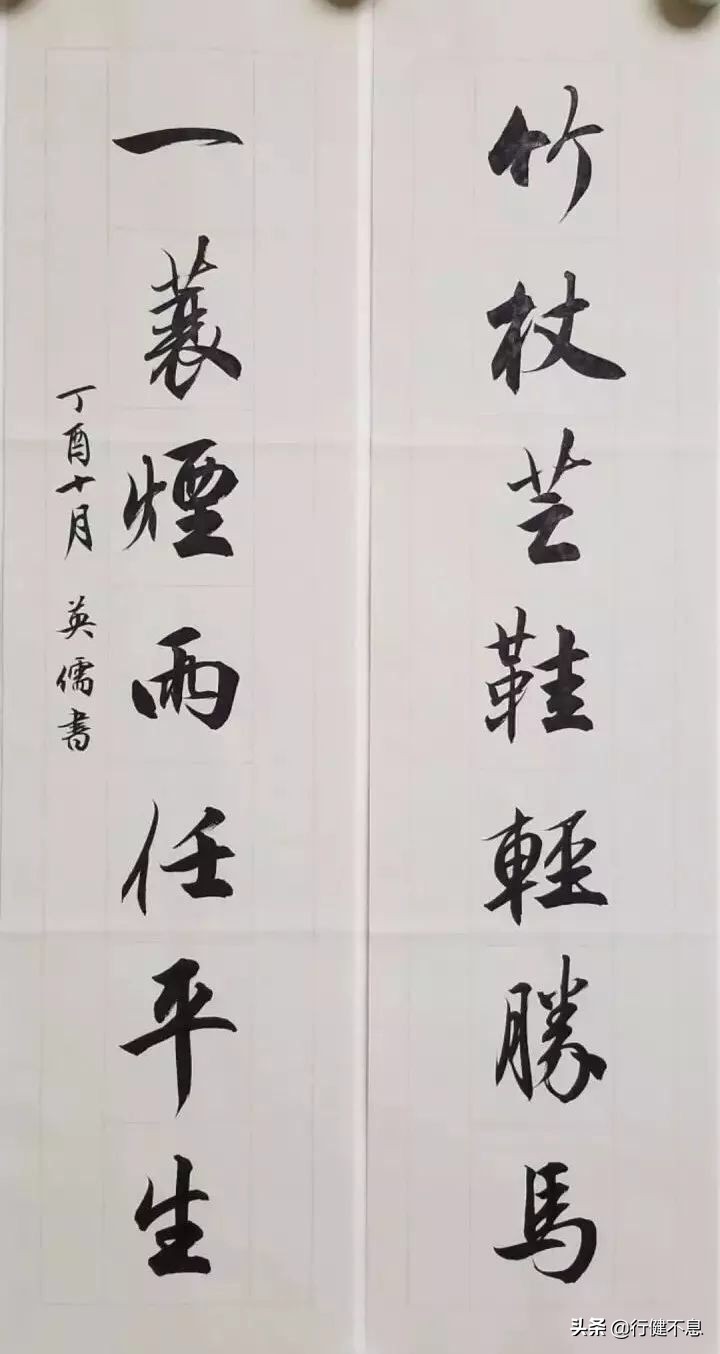 竹杖芸鞋輕勝馬
一蓑煙雨任平生
丁酉十月 英儒書
头条 @行健不息